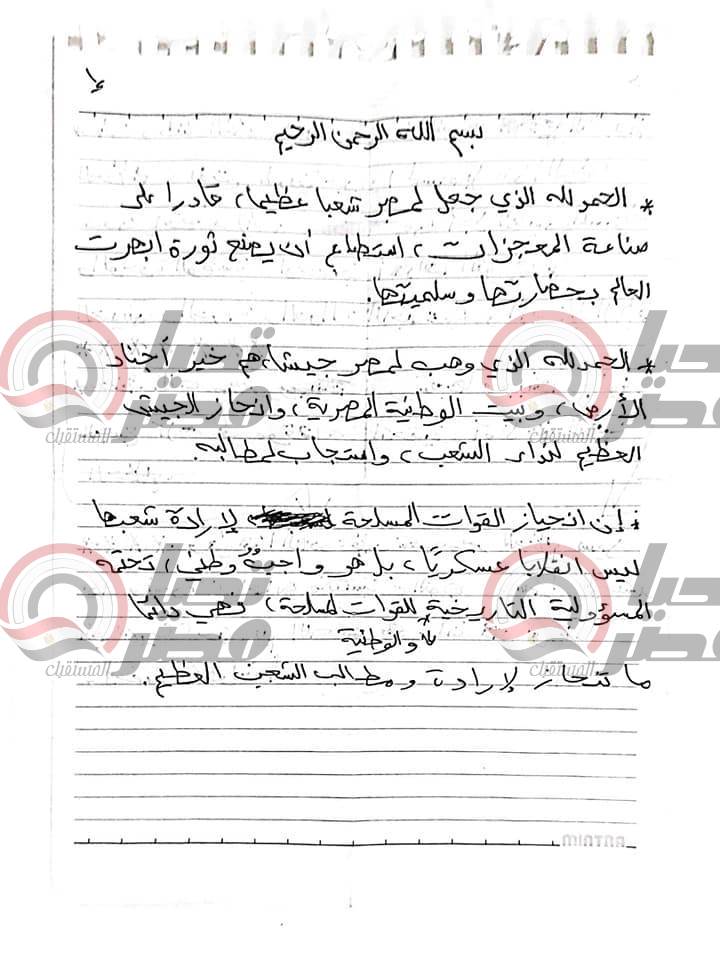 ١
بسم الله الرحمن الرحيم
* الحمد لله الذي جعل لمصر شعبا عظيما، قادرا على
صناعة المعجزات، استطاع أن يصنع ثورة ابهرت
العالم بحضارتها وسلميتها.
* الحمد لله الذي وهب لمصر جيشا، هم خير أجناد
الأرض، وبيت الوطنية المصرية، وانحاز الجيش
العظيم لنداء الشعب، واستجاب لمطالبه.
* إن انحياز القوات المسلحة لإرادة شعبها
ليس انقلابا عسكريًا، بل هو واجبٌ وطني، تحتمه
المسؤولية التاريخية للقوات المسلحة، فهي دائمًا
* والوطنية
ما تنحاز لإرادة ومطالب الشعب العظيم.
تحيا مصر
المستقبل
تحيا مصر
المستقبل
تحيا مصر
المستقبل
تحيا مصر
المستقبل